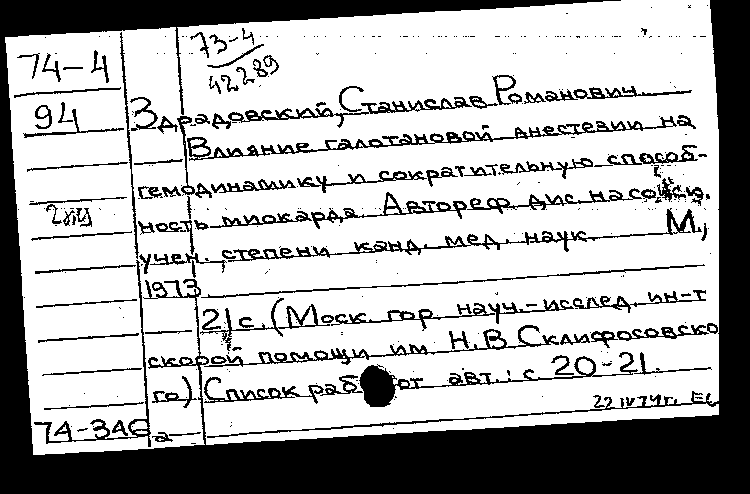 73-4
42289
74-4
94
Здрадовский, Станислав Романович
Влияние галотановой анестезии на
гемодинамику и сократительную способ-
ность миокарда. Автореф. дис. на соиск.
учен. степени канд. мед. наук. М.,
1973
21 с. (Моск. гор. науч.-исслед. ин-т
скорой помощи им. Н.В Склифосовско
го). Список работ авт.: с 20-21.
22 IV 74г.
74-346